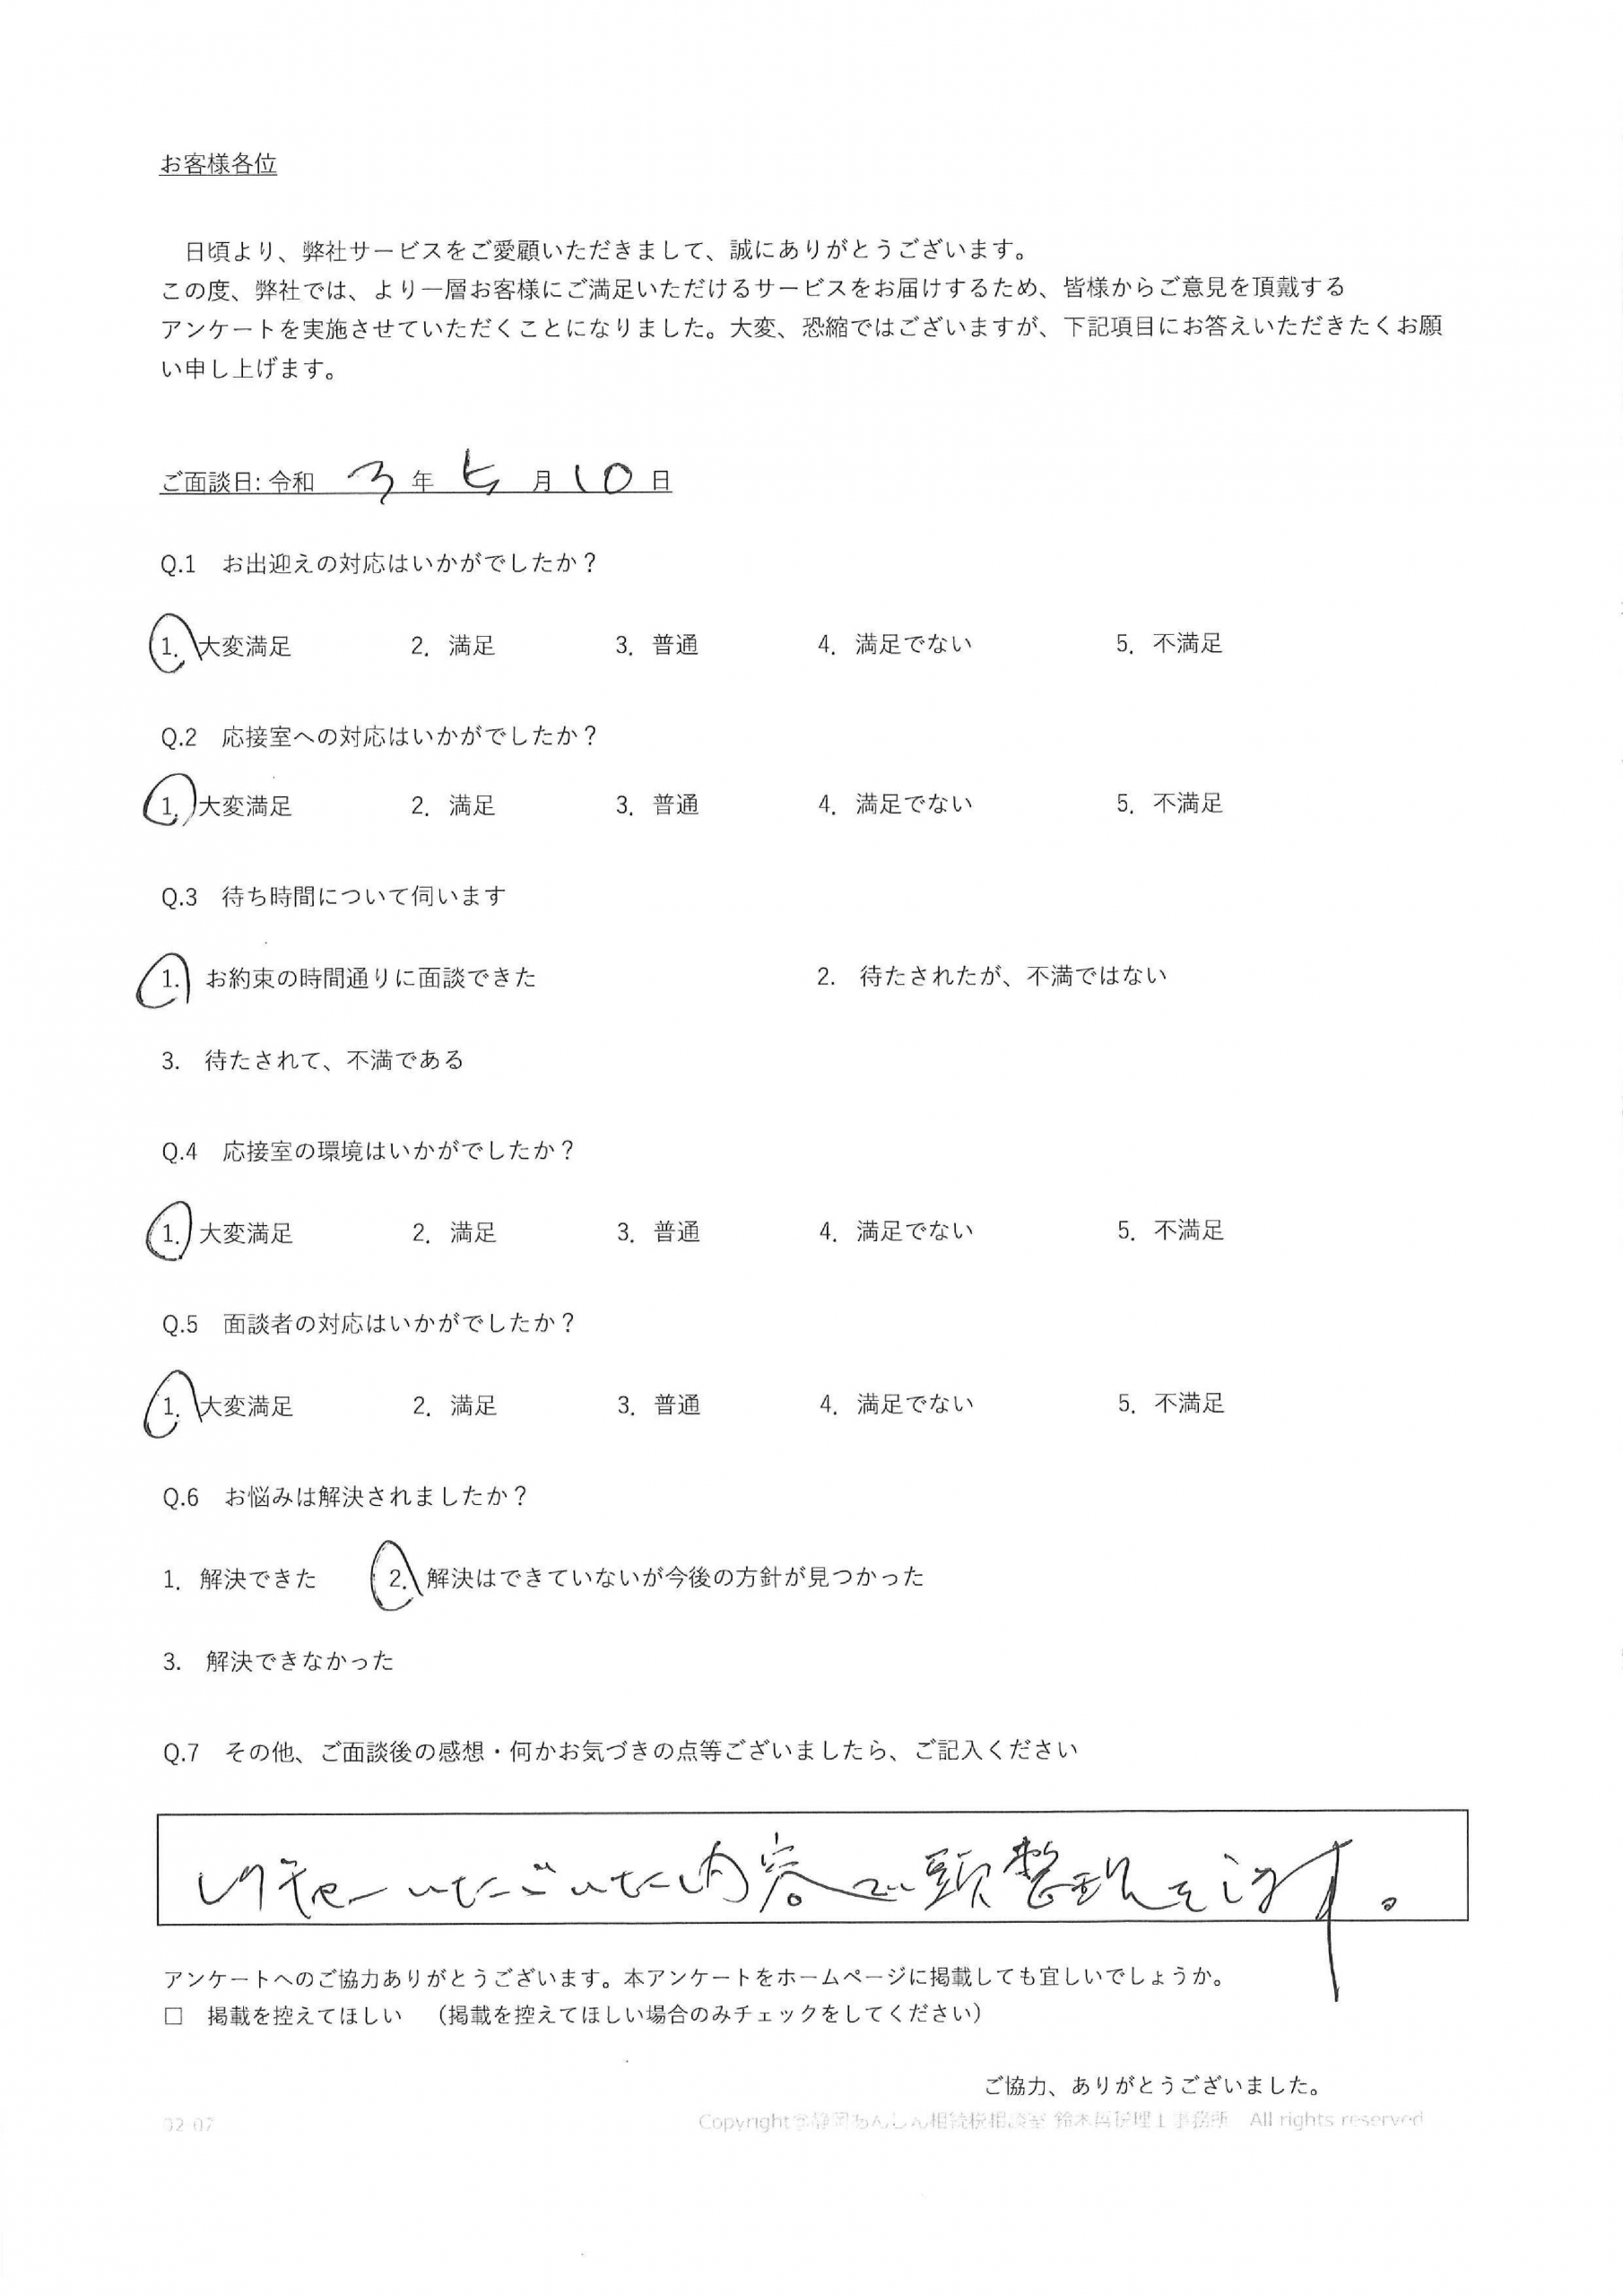 お客様各位
日頃より、弊社サービスをご愛顧いただきまして、誠にありがとうございます。
この度、弊社では、より一層お客様にご満足いただけるサービスをお届けするため、皆様からご意見を頂戴する
アンケートを実施させていただくことになりました。大変、恐縮ではございますが、下記項目にお答えいただきたくお願
い申し上げます。
ご面談日: 令和 3 年 七 月 10 日
Q.1 お出迎えの対応はいかがでしたか？
1. 大変満足 2. 満足 3. 普通 4. 満足でない 5. 不満足
Q.2 応接室への対応はいかがでしたか？
1. 大変満足 2. 満足 3. 普通 4. 満足でない 5. 不満足
Q.3 待ち時間について伺います
1. お約束の時間通りに面談できた 2. 待たされたが、不満ではない
3. 待たされて、不満である
Q.4 応接室の環境はいかがでしたか？
1. 大変満足 2. 満足 3. 普通 4. 満足でない 5. 不満足
Q.5 面談者の対応はいかがでしたか？
1. 大変満足 2. 満足 3. 普通 4. 満足でない 5. 不満足
Q.6 お悩みは解決されましたか？
1. 解決できた 2. 解決はできていないが今後の方針が見つかった
3. 解決できなかった
Q.7 その他、ご面談後の感想・何かお気づきの点等ございましたら、ご記入ください
レクチャーいただいた内容で頭整理をします。
アンケートへのご協力ありがとうございます。本アンケートをホームページに掲載しても宜しいでしょうか。
□ 掲載を控えてほしい （掲載を控えてほしい場合のみチェックをしてください）
ご協力、ありがとうございました。
02-07 Copyright@静岡あんしん相続税相談室 All rights reserved